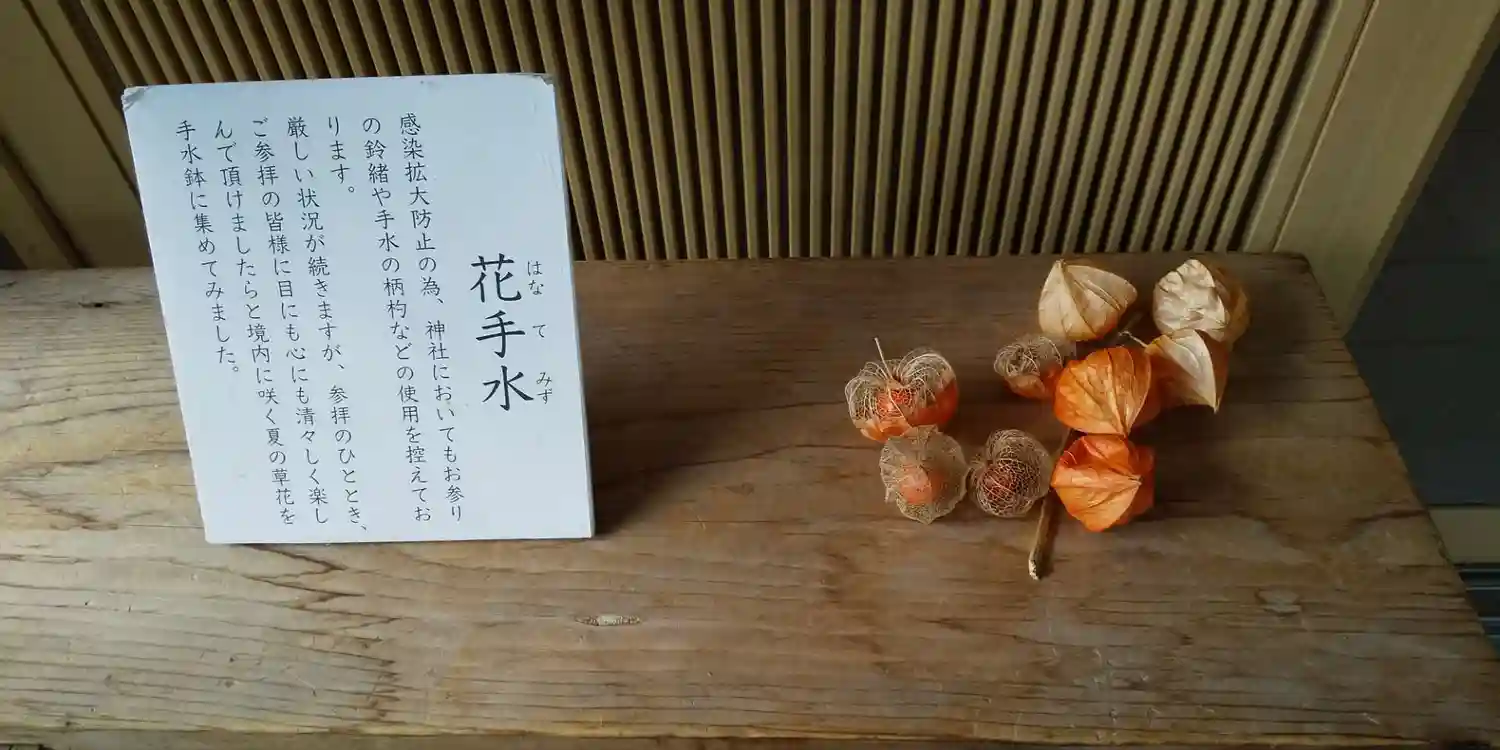 花手水
はな て みず
感染拡大防止の為、神社においてもお参り
の鈴緒や手水の柄杓などの使用を控えてお
ります。
厳しい状況が続きますが、参拝のひととき、
ご参拝の皆様に目にも心にも清々しく楽し
んで頂けましたらと境内に咲く夏の草花を
手水鉢に集めてみました。